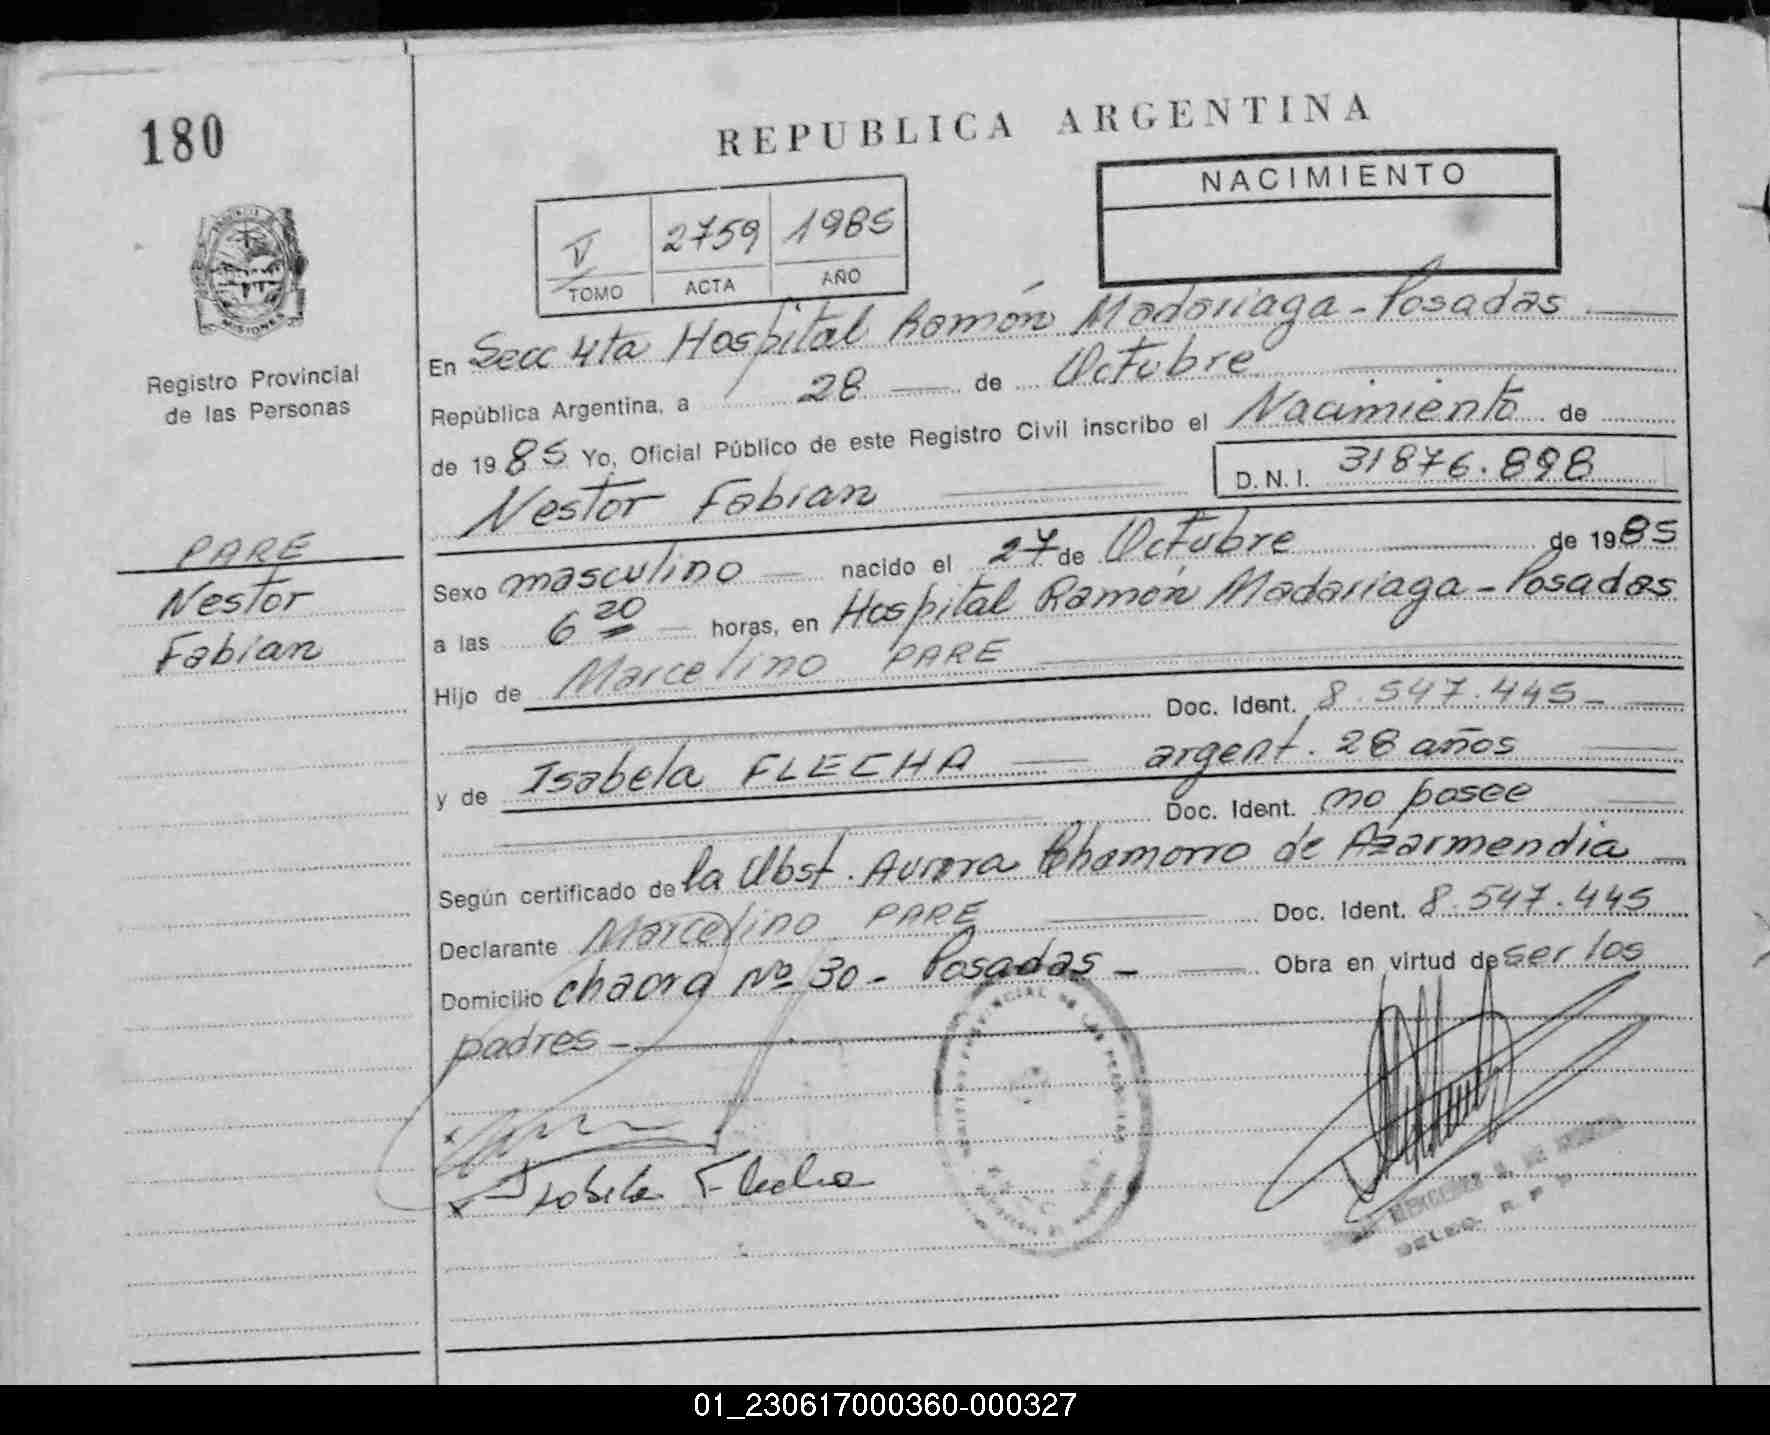 180
REPUBLICA ARGENTINA
NACIMIENTO
V 2759 1985
TOMO ACTA AÑO
Registro Provincial
de las Personas
MISIONES
En Secc 4ta Hospital Ramón Madariaga - Posadas
República Argentina, a 28 de Octubre
de 1985 Yo, Oficial Público de este Registro Civil inscribo el Nacimiento de
Nestor Fabian D.N.I. 31876.898
PARE
Nestor
Fabian
Sexo masculino nacido el 27 de Octubre de 1985
a las 6 20 horas, en Hospital Ramón Madariaga - Posadas
Hijo de Marcelino PARE
Doc. Ident. 8.547.445-
y de Isabela FLECHA argent. 28 años
Doc. Ident. no posee
Según certificado de la Obst. Aurora Chamorro de Azarmendia
Declarante Marcelino PARE Doc. Ident. 8.547.445
Domicilio chacra Nº 30 - Posadas - Obra en virtud de ser los
padres -
Isabela Flecha
DELEG. R. P. P
01_230617000360-000327